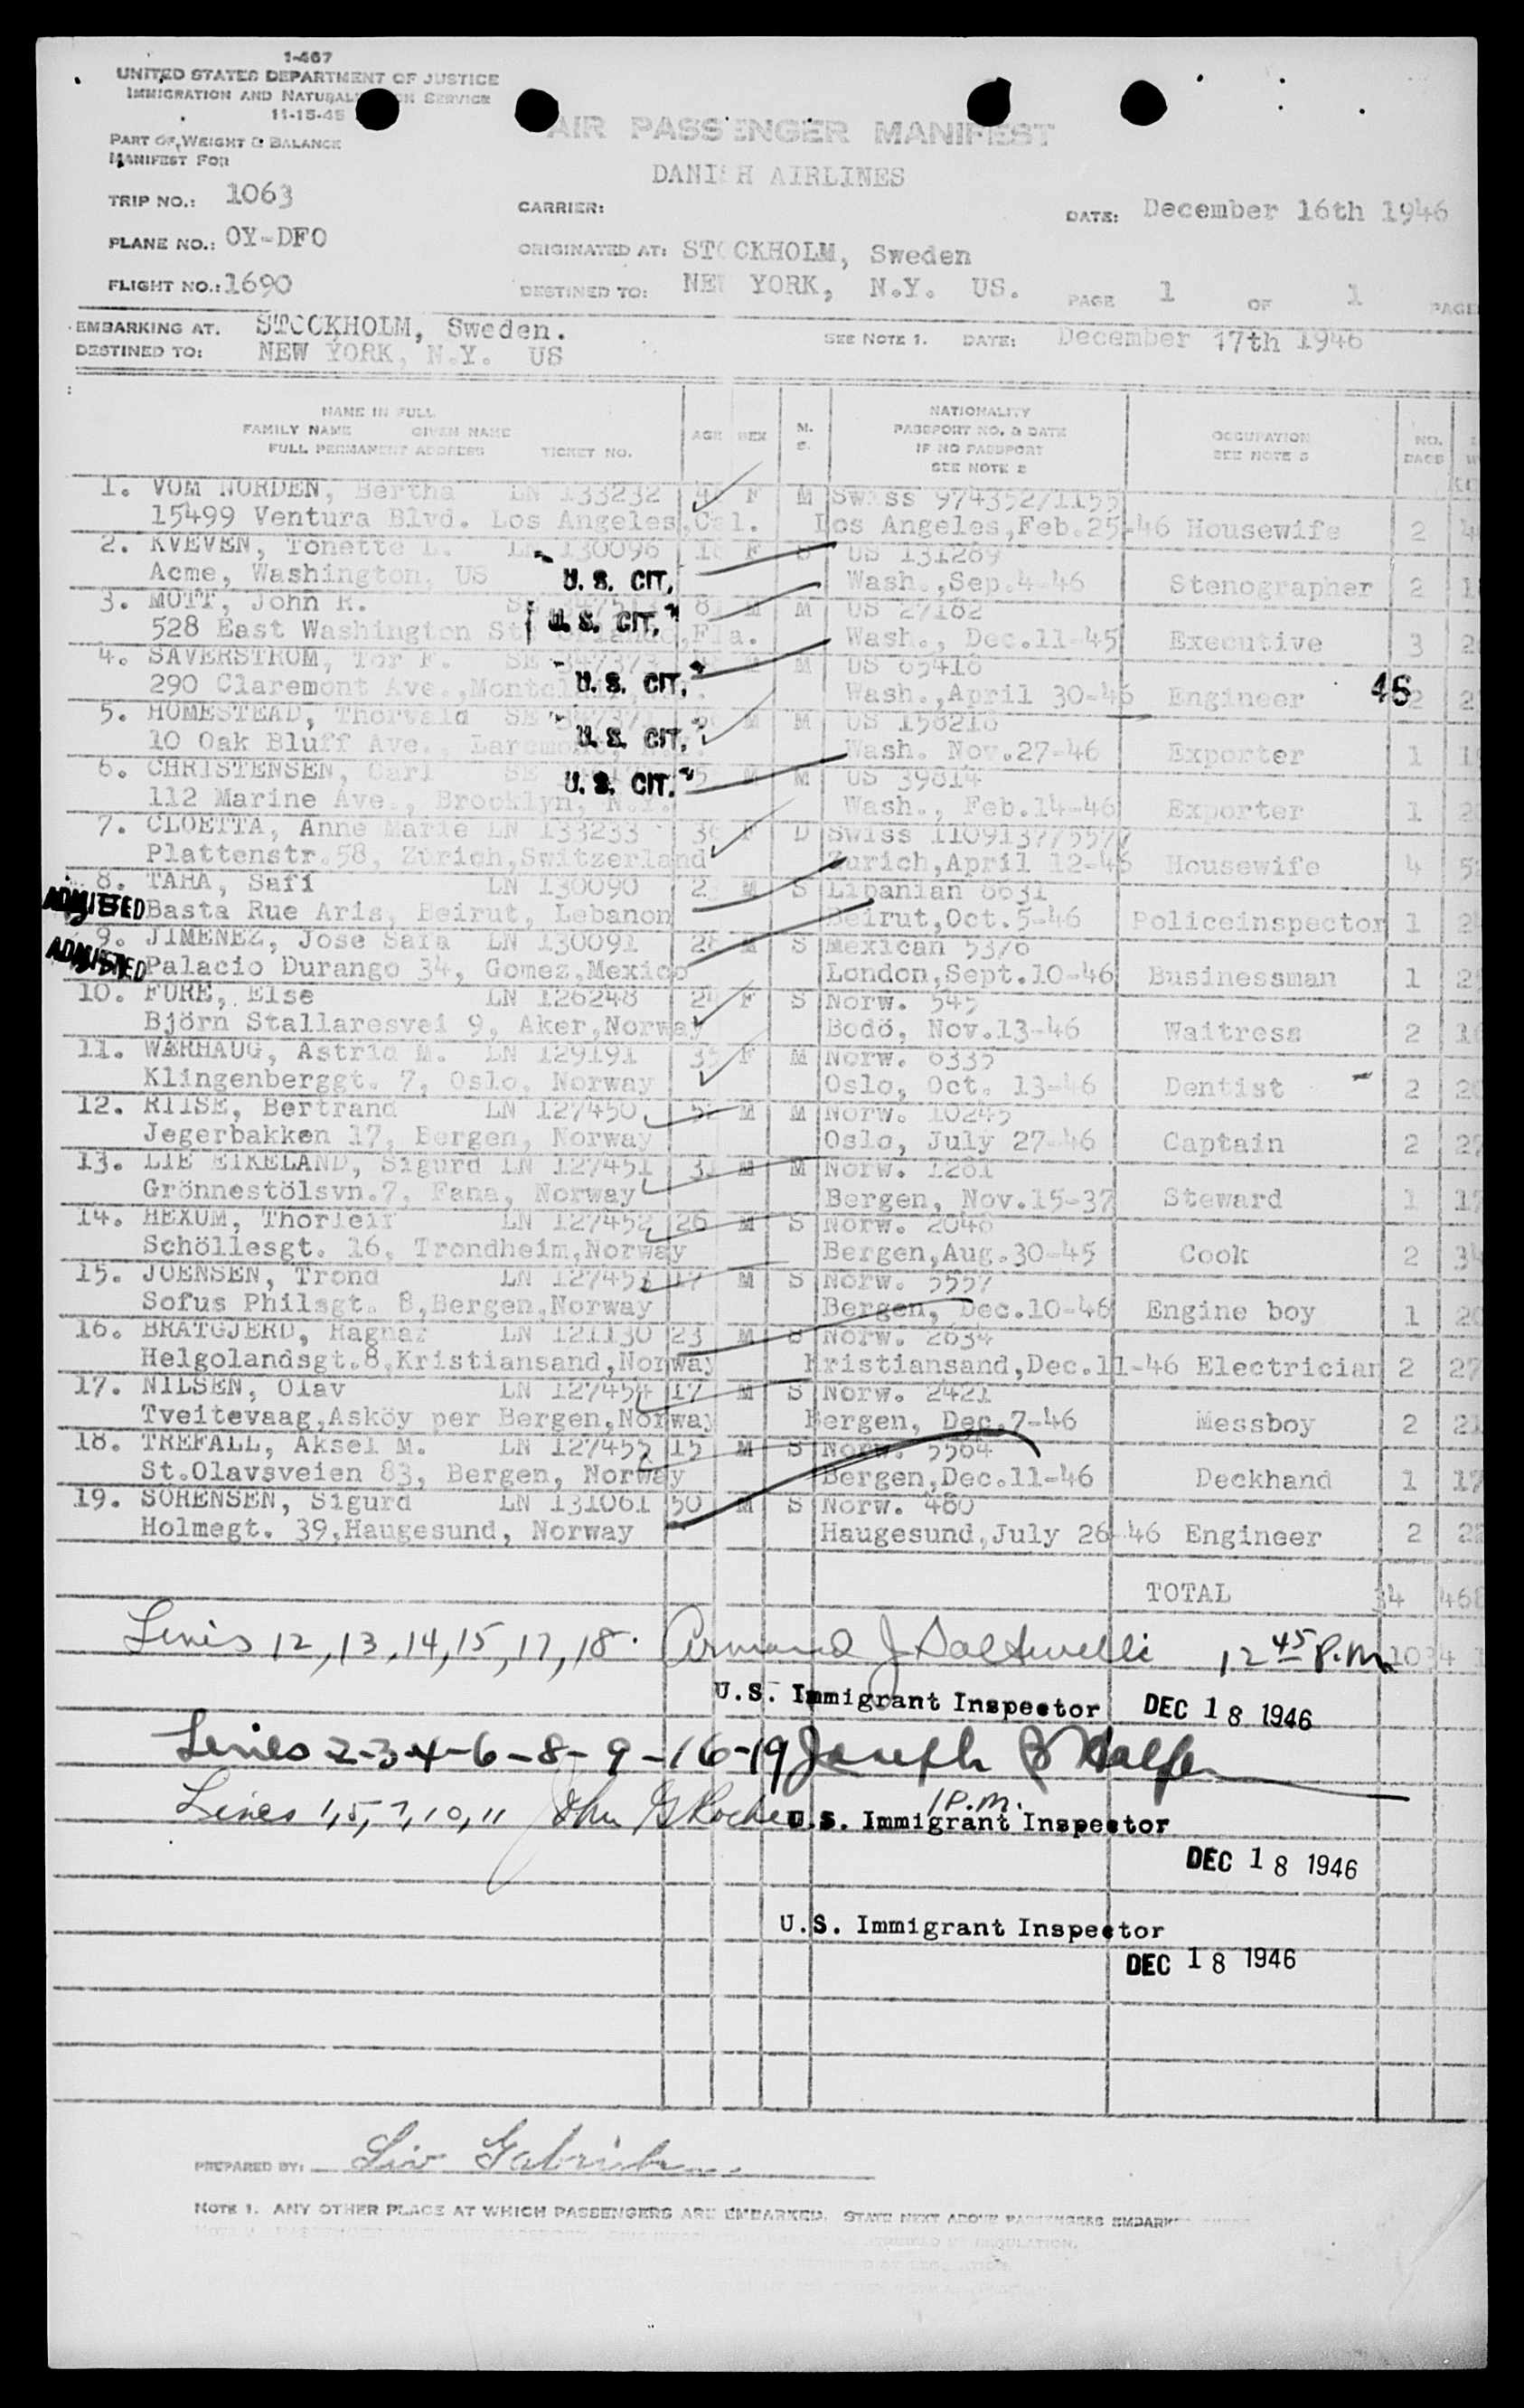 1-467
UNITED STATES DEPARTMENT OF JUSTICE
IMMIGRATION AND NATURALIZATION SERVICE
11-15-45
PART OF WEIGHT & BALANCE
MANIFEST FOR
AIR PASSENGER MANIFEST
DANISH AIRLINES
TRIP NO.: 1063 CARRIER: DATE: December 16th 1946
PLANE NO.: OY-DFO ORIGINATED AT: STOCKHOLM, Sweden
FLIGHT NO.: 1690 DESTINED TO: NEW YORK, N.Y. US. PAGE 1 OF 1 PAGE
EMBARKING AT. STOCKHOLM, Sweden. SEE NOTE 1. DATE: December 17th 1946
DESTINED TO: NEW YORK, N.Y. US
NAME IN FULL
FAMILY NAME GIVEN NAME
FULL PERMANENT ADDRESS TICKET NO. AGE SEX M. S. NATIONALITY PASSPORT NO. & DATE IF NO PASSPORT SEE NOTE 2 OCCUPATION SEE NOTE 3 NO. BAGS
1. VOM NORDEN, Bertha LN 133232 F M Swiss 974352/1155
15499 Ventura Blvd. Los Angeles, Cal. Los Angeles, Feb.25-46 Housewife 2
2. KVEVEN, Tonette L. LN 130096 F S US 131269
Acme, Washington, US U. S. CIT. Wash., Sep.4-46 Stenographer 2
3. MOTT, John R. M M US 27182
528 East Washington St. U. S. CIT. Fla. Wash., Dec.11-45 Executive 3
4. SAVERSTROM, Tor F. SE 347373 M US 65416
290 Claremont Ave., U. S. CIT. Wash., April 30-46 Engineer 46 2
5. HOMESTEAD, Thorvald SE M M US 158218
10 Oak Bluff Ave., U. S. CIT. Wash. Nov.27-46 Exporter 1
6. CHRISTENSEN, Carl SE M M US 39814
112 Marine Ave., Brooklyn, N.Y. U. S. CIT. Wash., Feb.14-46 Exporter 1
7. CLOETTA, Anne Marie LN 133233 F D Swiss 1109137/5577
Plattenstr.58, Zürich, Switzerland Zurich, April 12-46 Housewife 4
8. TAHA, Safi LN 130090 M S Libanian 8631
ADMITTED Basta Rue Aris, Beirut, Lebanon Beirut, Oct.5-46 Policeinspector 1
9. JIMENEZ, Jose Sara LN 130091 M S Mexican 5376
ADMITTED Palacio Durango 34, Gomez, Mexico London, Sept.10-46 Businessman 1
10. FURE, Else LN 126248 24 F S Norw. 545
Björn Stallaresvei 9, Aker, Norway Bodö, Nov.13-46 Waitress 2
11. WÆRHAUG, Astrid M. LN 129191 35 F M Norw. 6335
Klingenberggt. 7, Oslo, Norway Oslo, Oct. 13-46 Dentist 2
12. RIISE, Bertrand LN 127450 52 M M Norw. 10245
Jegerbakken 17, Bergen, Norway Oslo, July 27-46 Captain 2
13. LIE EIKELAND, Sigurd LN 127451 31 M M Norw. 1281
Grönnestölsvn.7, Fana, Norway Bergen, Nov.15-37 Steward 1
14. HEXUM, Thorleif LN 127452 26 M S Norw. 2046
Schöllesgt. 16, Trondheim, Norway Bergen, Aug.30-45 Cook 2
15. JOENSEN, Trond LN 127453 17 M S Norw. 5557
Sofus Philsgt. 8, Bergen, Norway Bergen, Dec.10-46 Engine boy 1
16. BRATGJERD, Ragnar LN 121130 23 M S Norw. 2634
Helgolandsgt.8, Kristiansand, Norway Kristiansand, Dec.11-46 Electrician 2
17. NILSEN, Olav LN 127454 17 M S Norw. 2421
Tveitevaag, Asköy per Bergen, Norway Bergen, Dec.7-46 Messboy 2
18. TREFALL, Aksel M. LN 127455 15 M S Norw. 5564
St.Olavsveien 83, Bergen, Norway Bergen, Dec.11-46 Deckhand 1
19. SÖRENSEN, Sigurd LN 131061 50 M S Norw. 480
Holmegt. 39, Haugesund, Norway Haugesund, July 26-46 Engineer 2
TOTAL 34 468
Lines 12, 13, 14, 15, 17, 18. Armand J 12 45 P.M.
U.S. Immigrant Inspector DEC 18 1946
Lines 2-3-4-6-8-9-16-19 Joseph
Lines 1, 5, 7, 10, 11 John G Roche 1 P.M.
U.S. Immigrant Inspector
DEC 18 1946
U.S. Immigrant Inspector
DEC 18 1946
PREPARED BY: Liv
NOTE 1. ANY OTHER PLACE AT WHICH PASSENGERS ARE EMBARKED. STATE NEXT ABOVE PASSENGERS